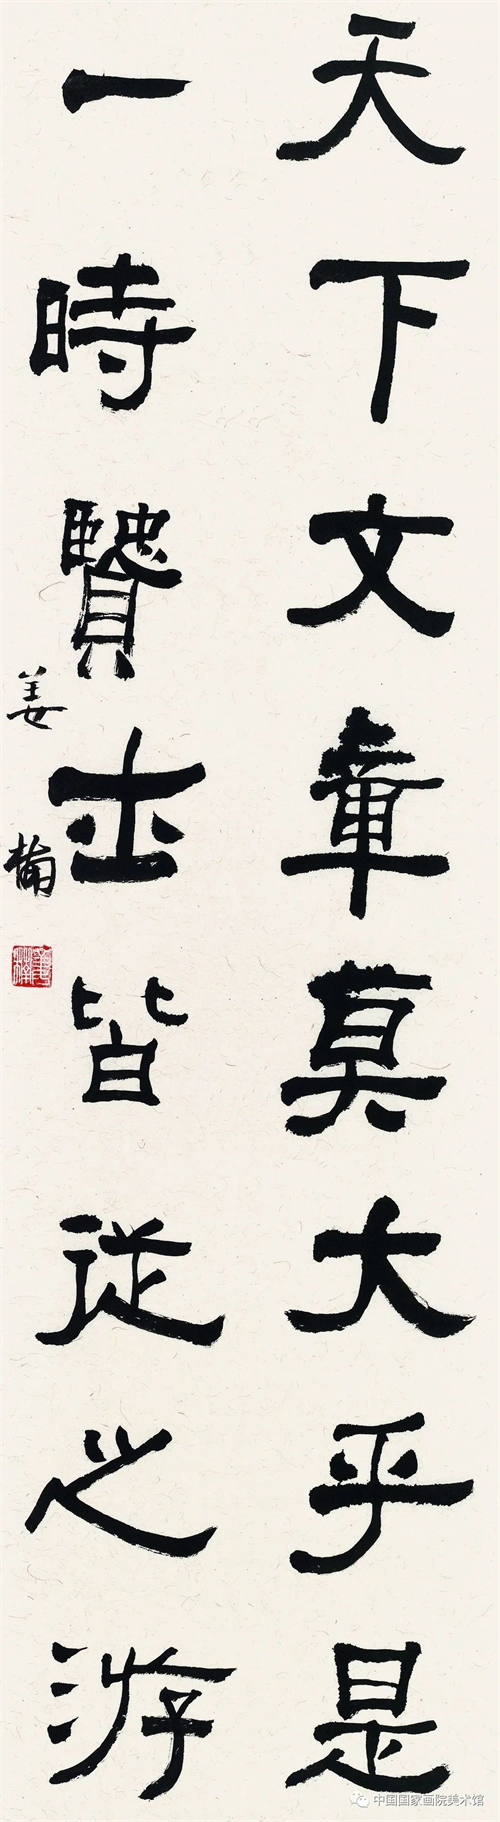 天下文章莫大乎是
一時賢士皆從之游
姜楠
中国国家画院美术馆